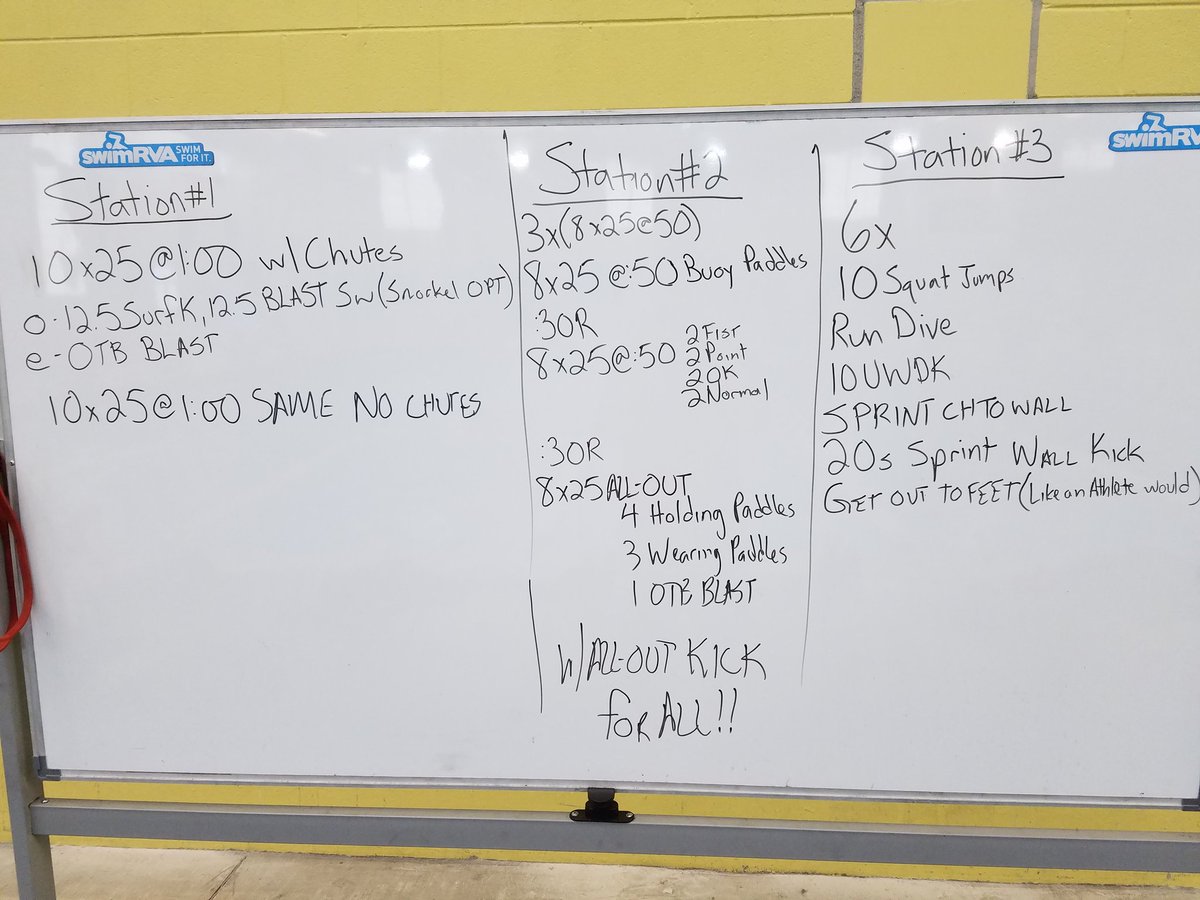 swimRVA SWIM FOR IT.
Station #1
10x25@1:00 w/ Chutes
o-12.5 Surf K, 12.5 BLAST Sw (Snorkel OPT)
e- OTB BLAST
10x25@1:00 SAME NO CHUTES
Station #2
3x(8x25@50)
8x25@:50 Buoy Paddles
:30R
8x25@:50 2 Fist
2 Point
2 OK
2 Normal
:30R
8x25 ALL-OUT
4 Holding Paddles
3 Wearing Paddles
1 OTB BLAST
W/ ALL-OUT KICK
for ALL!!
swimRV
Station #3
6x
10 Squat Jumps
Run Dive
10 UWDK
SPRINT CH TO WALL
20s Sprint WALL Kick
GET OUT TO FEET (Like an Athlete would)